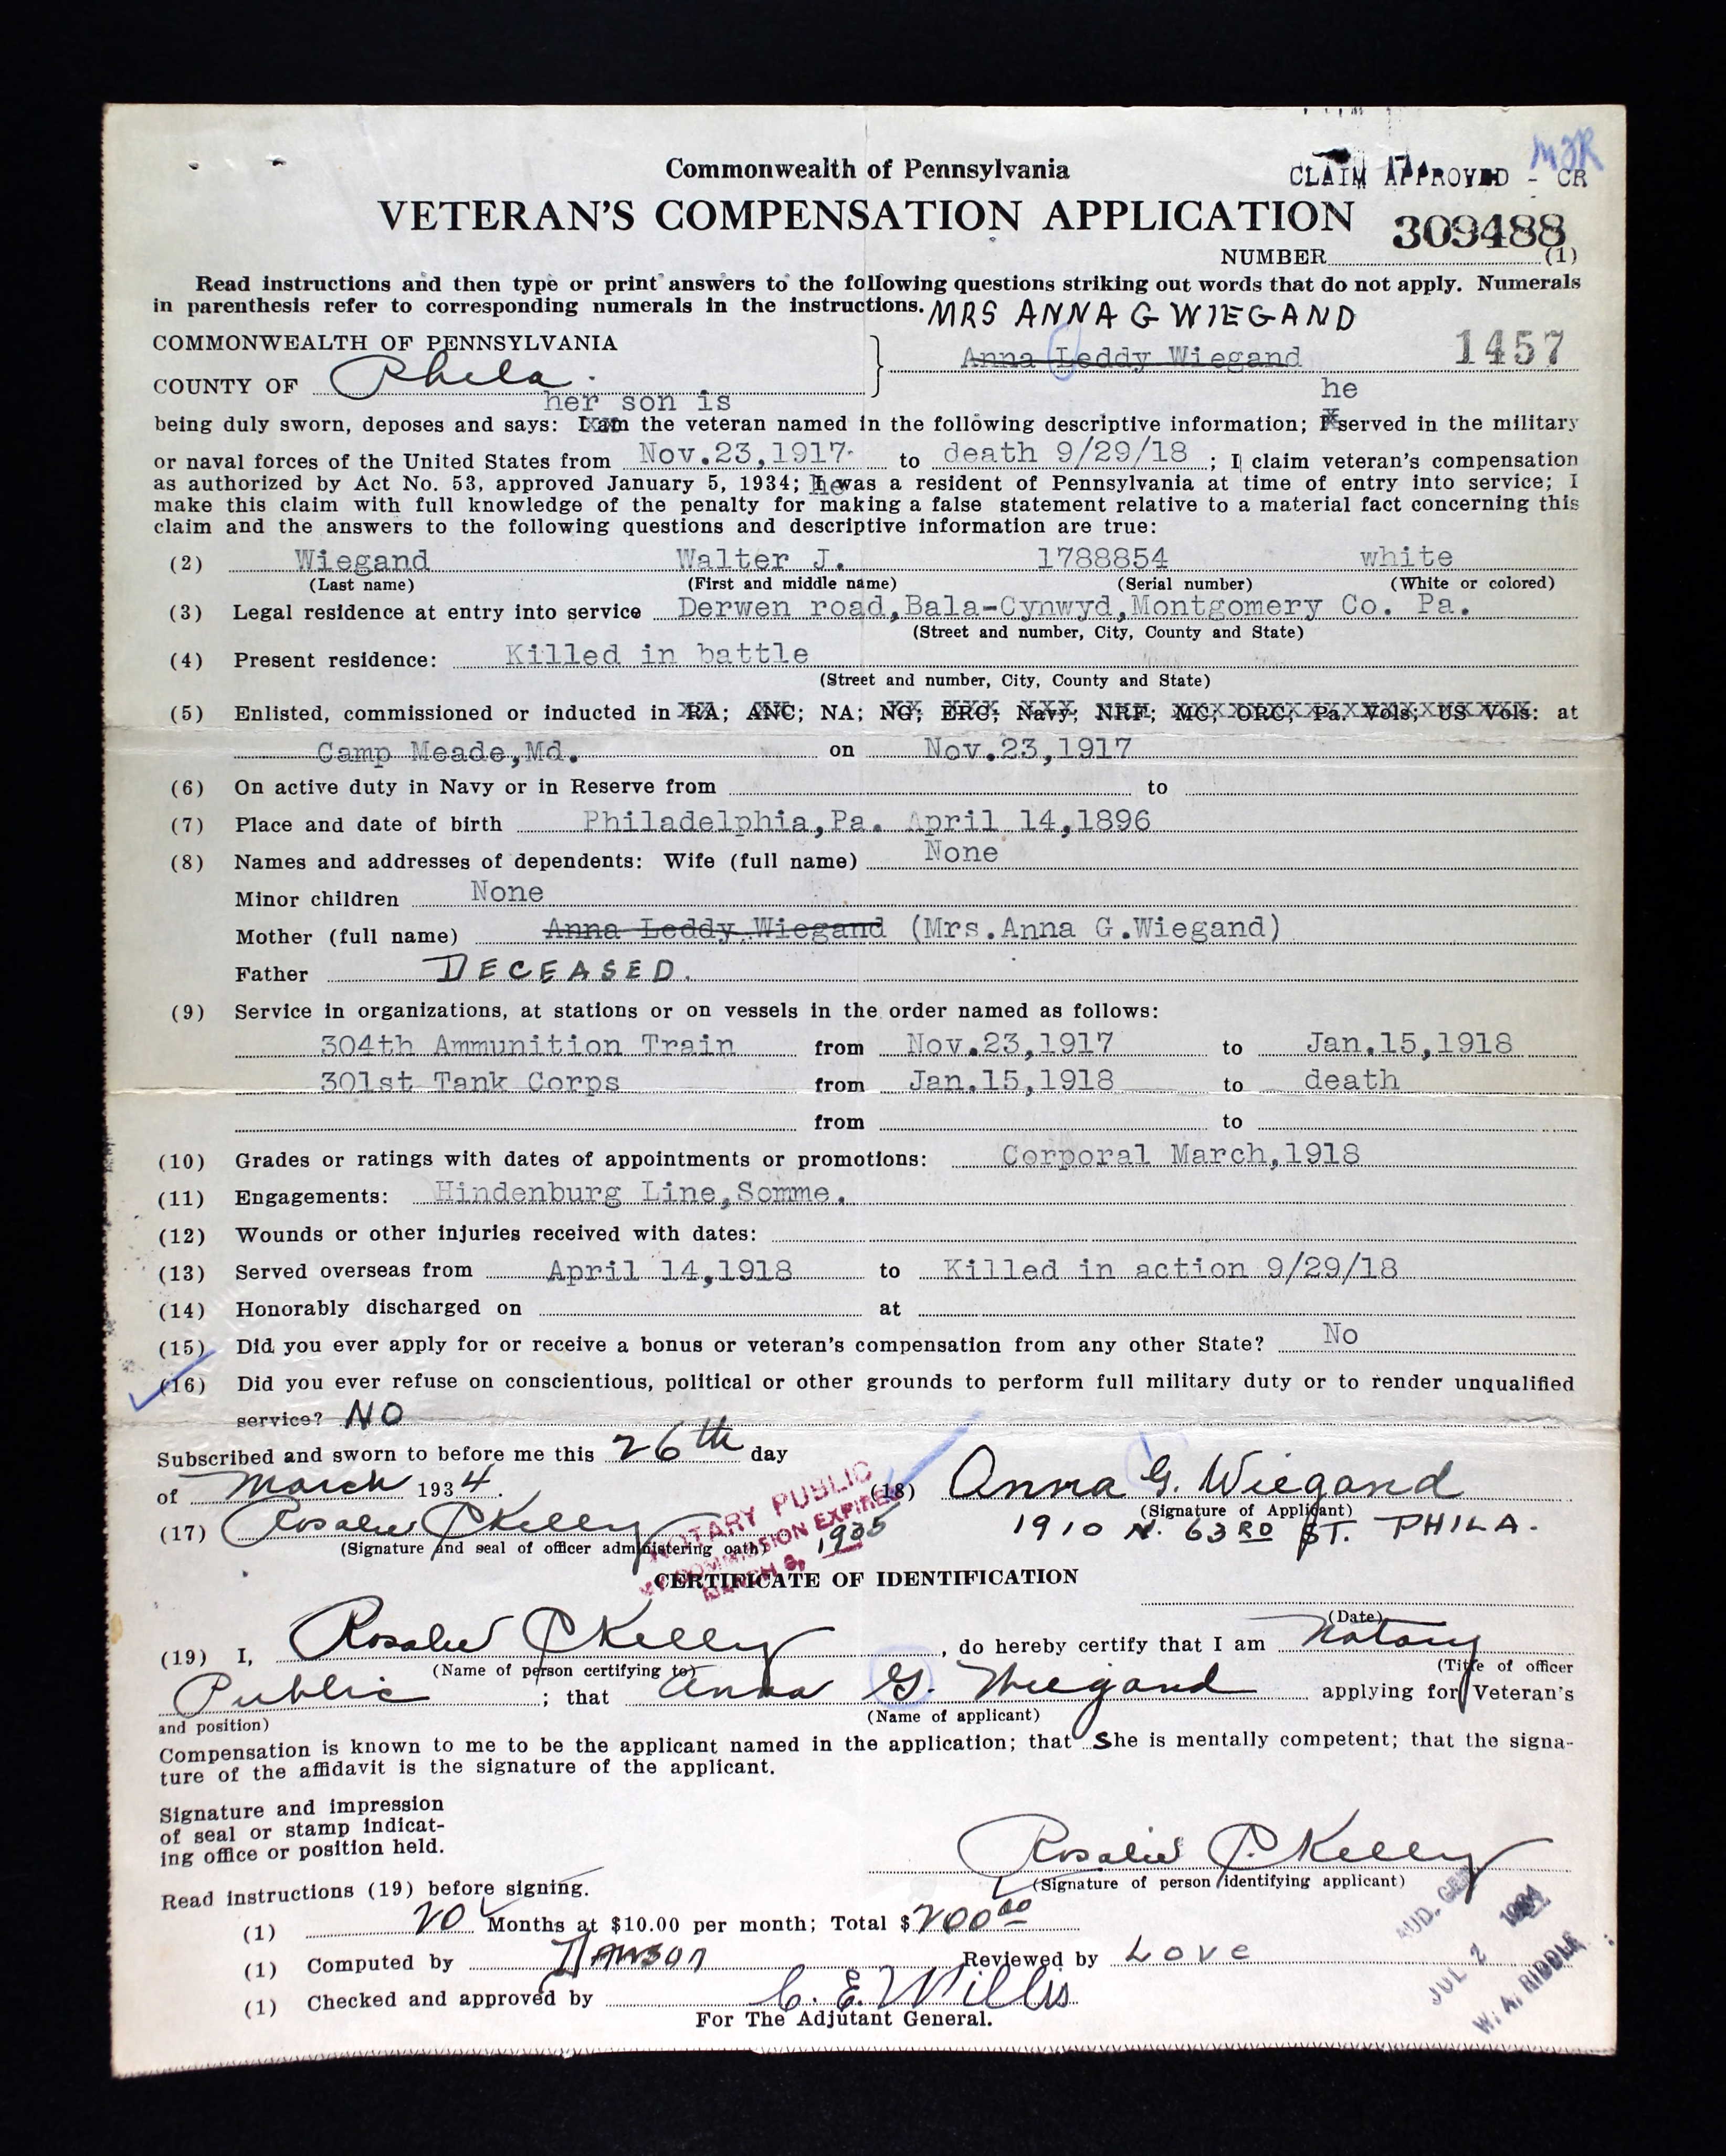 Commonwealth of Pennsylvania
CLAIM APPROVED - CR
VETERAN'S COMPENSATION APPLICATION
309488
NUMBER (1)
Read instructions and then type or print answers to the following questions striking out words that do not apply. Numerals
in parenthesis refer to corresponding numerals in the instructions. MRS ANNA G WIEGAND
COMMONWEALTH OF PENNSYLVANIA
Anna Leddy Wiegand 1457
COUNTY OF Phila.
her son is he
being duly sworn, deposes and says: I am the veteran named in the following descriptive information; I served in the military
or naval forces of the United States from Nov.23,1917 to death 9/29/18 ; I claim veteran's compensation
as authorized by Act No. 53, approved January 5, 1934; he was a resident of Pennsylvania at time of entry into service; I
make this claim with full knowledge of the penalty for making a false statement relative to a material fact concerning this
claim and the answers to the following questions and descriptive information are true:
(2) Wiegand Walter J. 1788854 white
(Last name) (First and middle name) (Serial number) (White or colored)
(3) Legal residence at entry into service Derwen road,Bala-Cynwyd,Montgomery Co. Pa.
(Street and number, City, County and State)
(4) Present residence: Killed in battle
(Street and number, City, County and State)
(5) Enlisted, commissioned or inducted in RA; ANC; NA; NG; ERC; Navy; NRF; MC; ORC; Pa. Vols; US Vols: at
Camp Meade,Md. on Nov.23,1917
(6) On active duty in Navy or in Reserve from to
(7) Place and date of birth Philadelphia,Pa. April 14,1896
(8) Names and addresses of dependents: Wife (full name) None
Minor children None
Mother (full name) Anna Leddy Wiegand (Mrs.Anna G.Wiegand)
Father DECEASED.
(9) Service in organizations, at stations or on vessels in the order named as follows:
304th Ammunition Train from Nov.23,1917 to Jan.15,1918
301st Tank Corps from Jan.15,1918 to death
from to
(10) Grades or ratings with dates of appointments or promotions: Corporal March,1918
(11) Engagements: Hindenburg Line,Somme.
(12) Wounds or other injuries received with dates:
(13) Served overseas from April 14,1918 to Killed in action 9/29/18
(14) Honorably discharged on at
(15) Did you ever apply for or receive a bonus or veteran's compensation from any other State? No
(16) Did you ever refuse on conscientious, political or other grounds to perform full military duty or to render unqualified
service? NO
Subscribed and sworn to before me this 26th day
of March 1934.
(18) Anna G. Wiegand
(Signature of Applicant)
1910 N. 63RD ST. PHILA.
(17) Rosalie P Kelly
(Signature and seal of officer administering oath)
NOTARY PUBLIC
MY COMMISSION EXPIRES
MARCH 1935
CERTIFICATE OF IDENTIFICATION
(Date)
(19) I, Rosalie P Kelly, do hereby certify that I am Notary
(Name of person certifying to) (Title of officer
Public ; that Anna G. Wiegand applying for Veteran's
and position) (Name of applicant)
Compensation is known to me to be the applicant named in the application; that she is mentally competent; that the signa-
ture of the affidavit is the signature of the applicant.
Signature and impression
of seal or stamp indicat-
ing office or position held.
Rosalie P. Kelly
(Signature of person identifying applicant)
Read instructions (19) before signing.
(1) 20 Months at $10.00 per month; Total $ 200 00
(1) Computed by Reviewed by Love
(1) Checked and approved by C. E. Willis
For The Adjutant General.
AUD. GEN
JUL 2 1934
W. A. RIDDLE